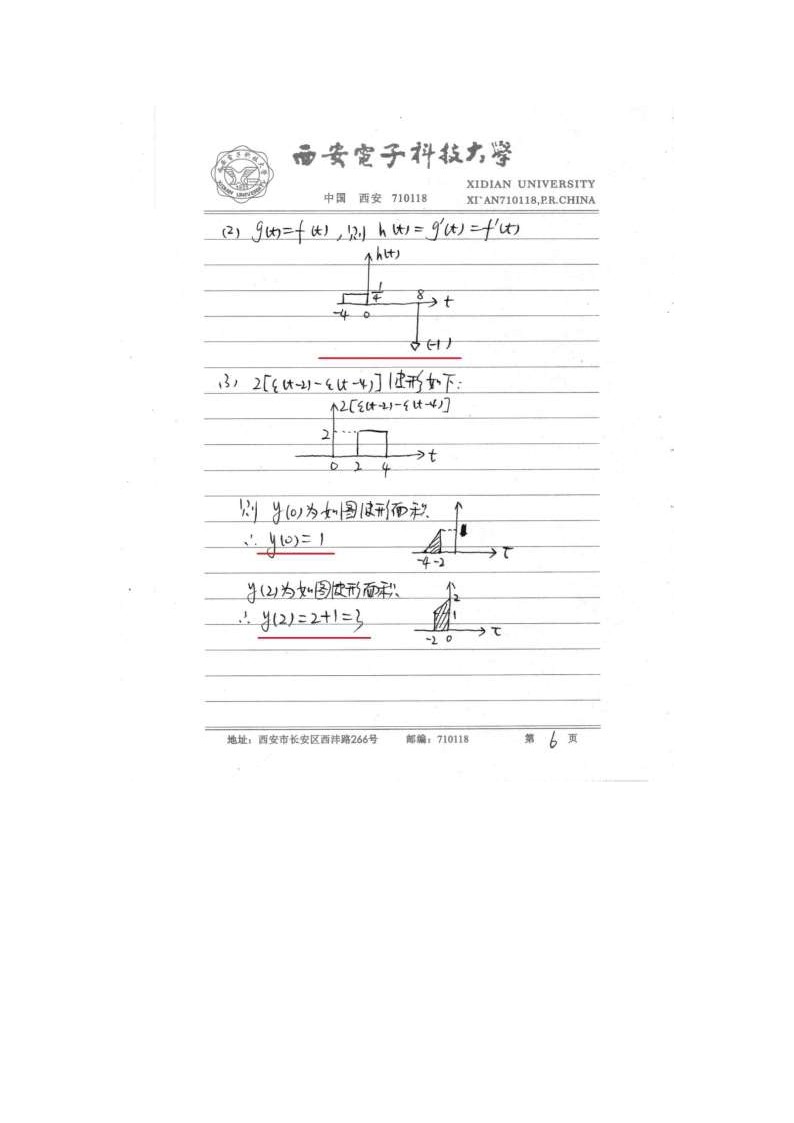 西安電子科技大學
XIDIAN UNIVERSITY
中国 西安 710118 XI'AN710118,P.R.CHINA
(2) g(t)=f(t),则 h(t)=g'(t)=f'(t)
h(t)
1/4 8 t
-4 0
(-1)
(3) 2[ε(t-2)-ε(t-4)]波形如下:
2[ε(t-2)-ε(t-4)]
2
t
0 2 4
则 y(0)为如图波形面积.
∴ y(0)=1
τ
-4 -2
y(2)为如图波形面积.
2
∴ y(2)=2+1=3 1
τ
-2 0
地址:西安市长安区西沣路266号 邮编:710118 第 6 页